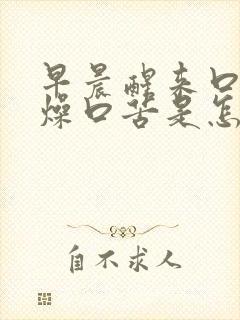 早晨醒来口
燥口苦是怎
自不求人